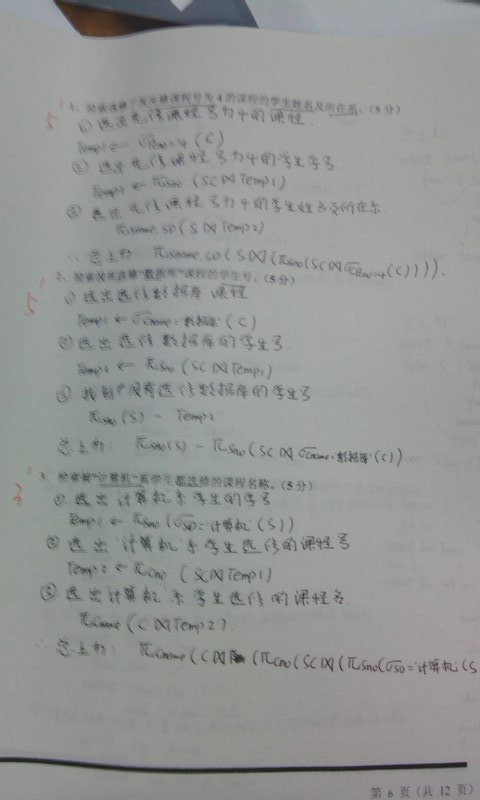 1、检索选修了先行课程号为4的课程的学生姓名及所在系。(5分)
5'
① 选出先修课程号为4的课程.
Temp1 ← σPno=4 (C)
② 选出先修课程号为4的学生学号.
Temp1 ← πSno (SC⋈Temp1)
③ 选出先修课程号为4的学生姓名及所在系
πSname,SD (S⋈Temp2)
∴ 总上析: πSname,SD (S⋈(πSno(SC⋈σPno=4(C)))).
2、检索没有选修"数据库"课程的学生号。(5分)
5'
① 选出选修数据库课程
Temp1 ← σCname='数据库'(C)
② 选出选修数据库的学生号.
Temp2 ← πSno (SC⋈Temp1)
③ 找到没有选修数据库的学生号
πSno (S) - Temp2
总上析: πSno(S) - πSno(SC⋈σCname='数据库'(C))
3、检索被"计算机"系学生都选修的课程名称。(5分)
① 选出计算机系学生的学号
Temp1 ← πSno (σSD='计算机'(S))
② 选出'计算机'系学生选修的课程号
Temp2 ← πCno (SC⋈Temp1)
③ 选出计算机系学生选修的课程名.
πCname (C⋈Temp2).
∴ 总上析: πCname(C⋈(πCno(SC⋈(πSno(σSD='计算机'(S
第 6 页(共 12 页)